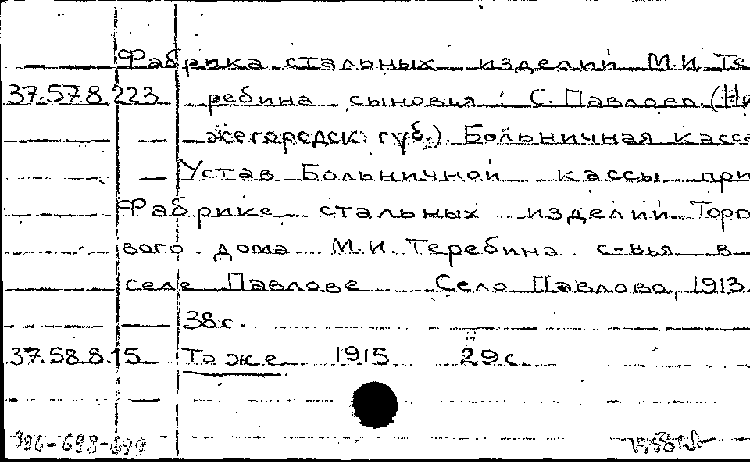 Фабрика стальных изделий М.И. Те
37.57.8.223 ребина сыновья: С. Павлово (Ни
жегородск. губ.) Больничная касса
Устав Больничной кассы при
Фабрике стальных изделий Торго
вого дома М.И. Теребина с-вья в
селе Павлове Село Павлово, 1913.
38с.
37.58.8.15 То же 1915 29с.